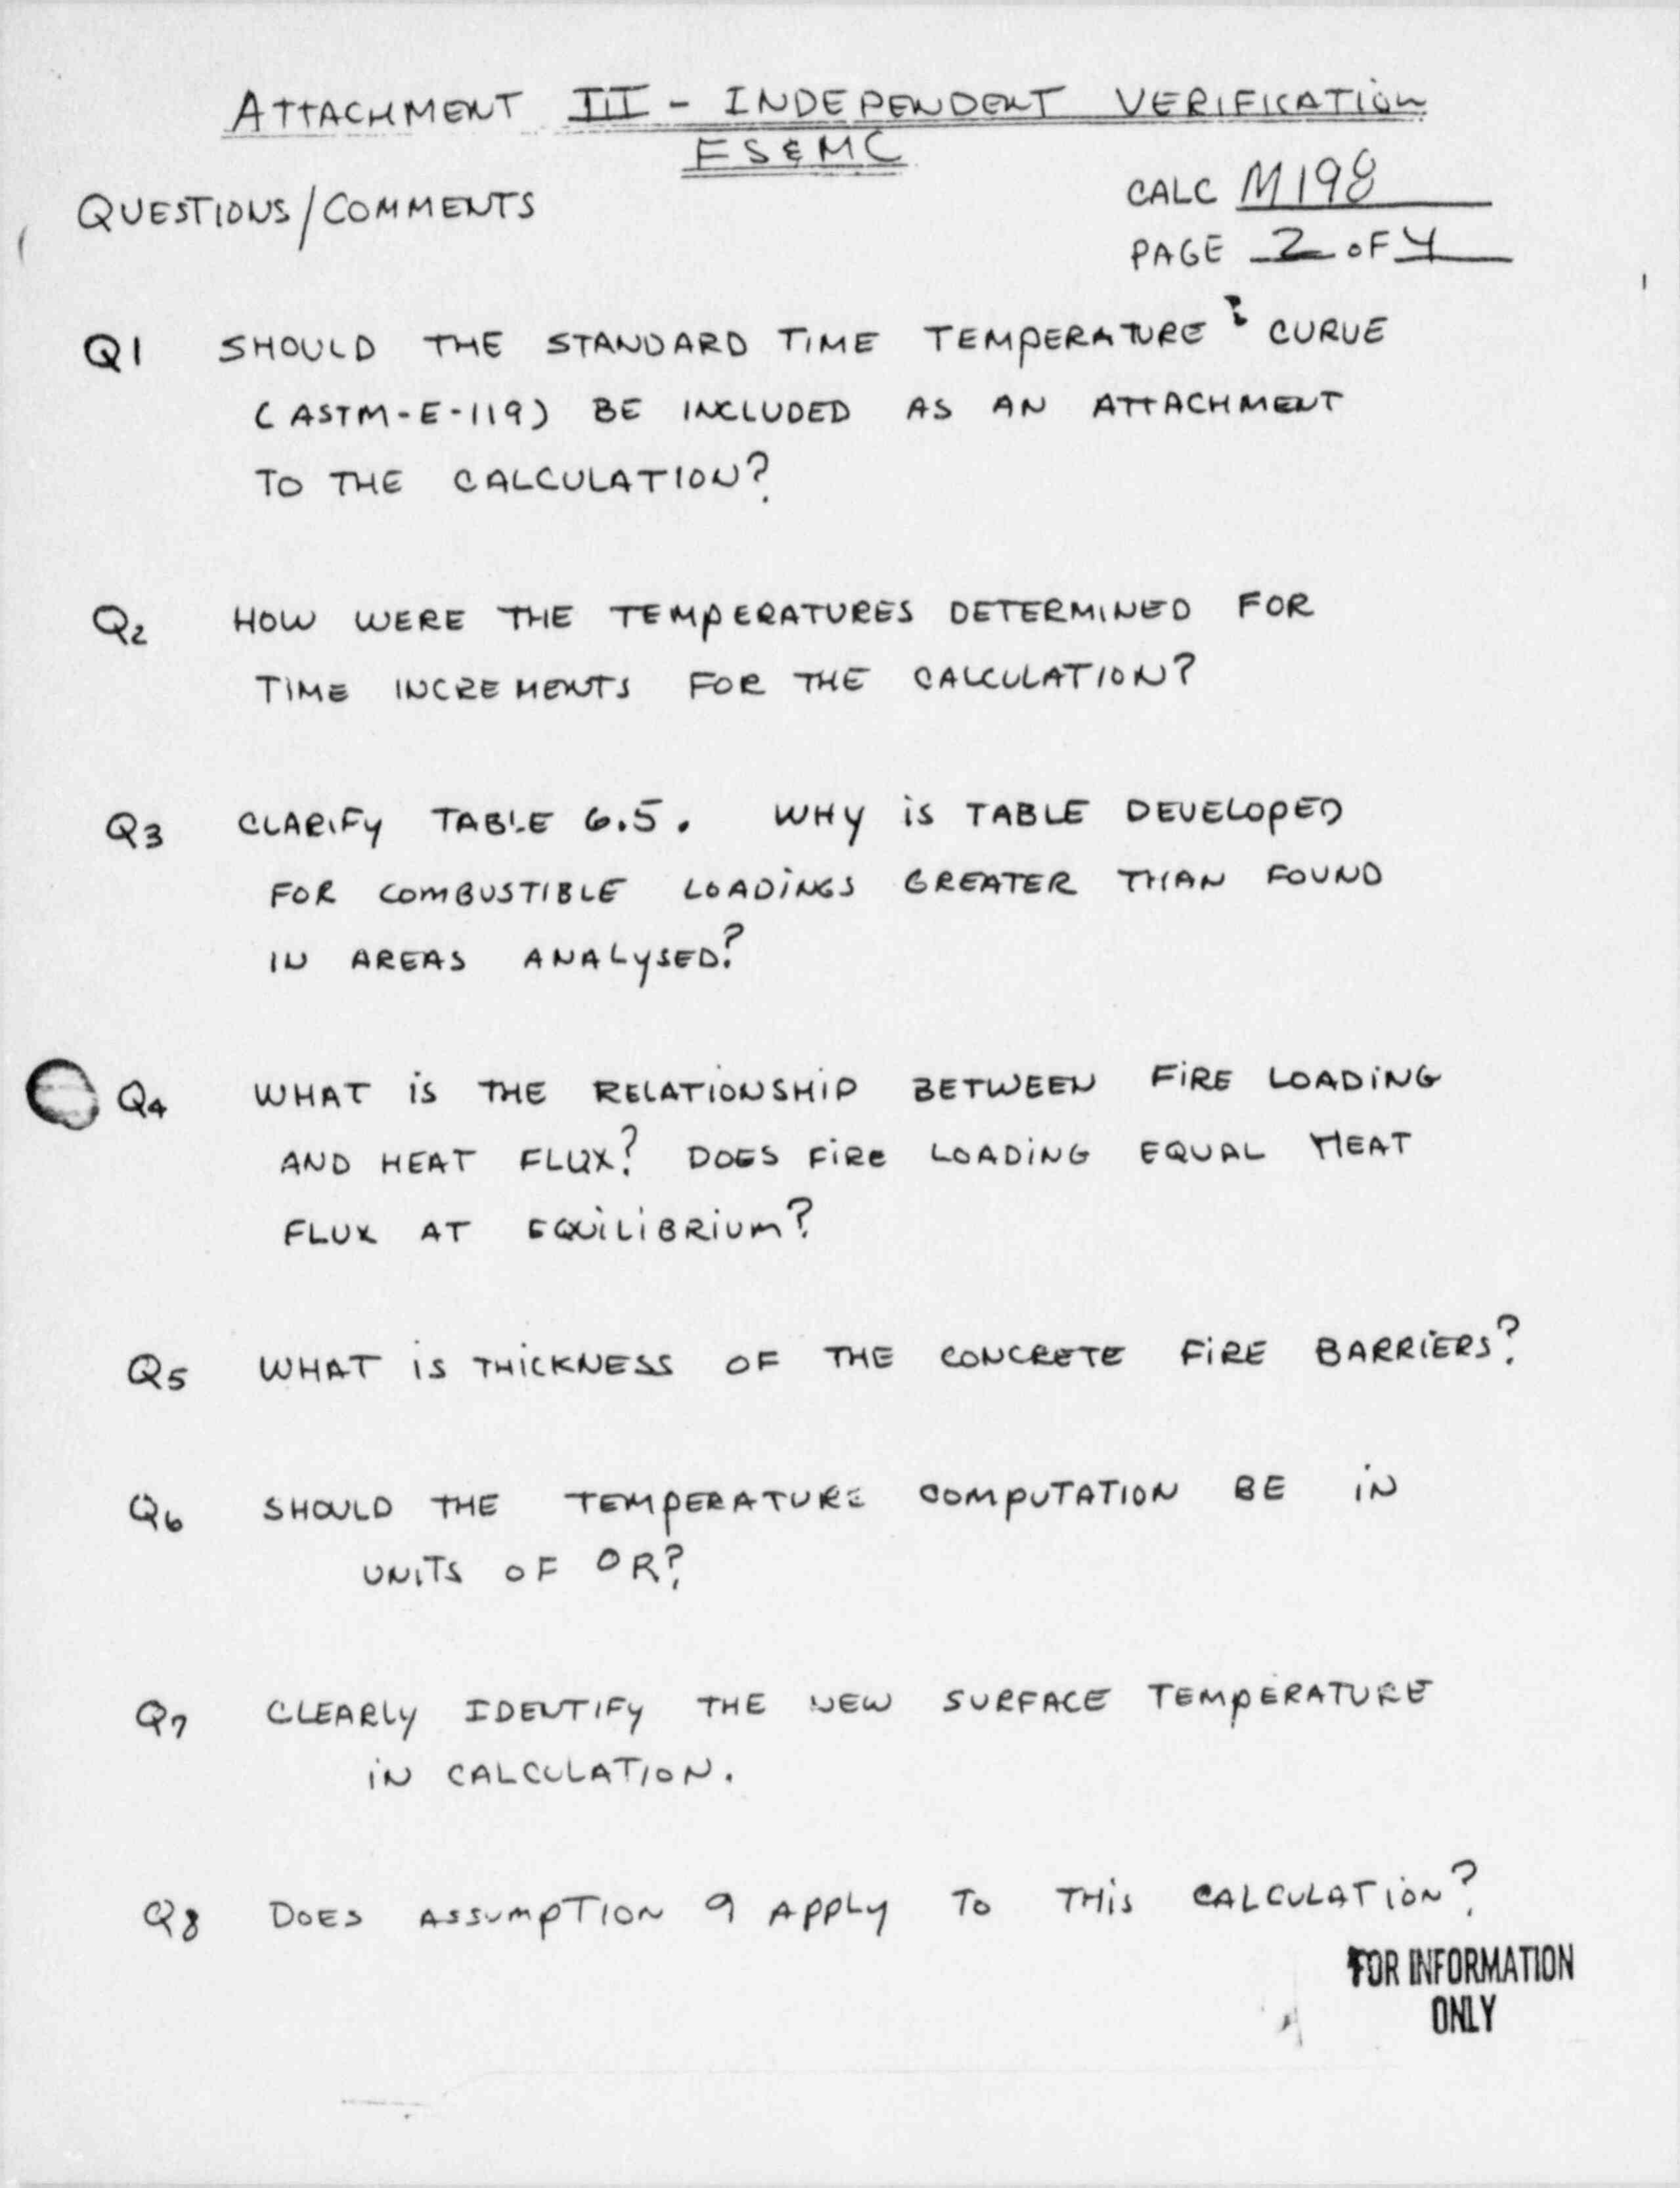 ATTACHMENT III - INDEPENDENT VERIFICATION
FS&MC
QUESTIONS/COMMENTS
CALC M198
PAGE 2 OF 4
Q1 SHOULD THE STANDARD TIME TEMPERATURE CURVE
(ASTM-E-119) BE INCLUDED AS AN ATTACHMENT
TO THE CALCULATION?
Q2 HOW WERE THE TEMPERATURES DETERMINED FOR
TIME INCREMENTS FOR THE CALCULATION?
Q3 CLARIFY TABLE 6.5. WHY IS TABLE DEVELOPED
FOR COMBUSTIBLE LOADINGS GREATER THAN FOUND
IN AREAS ANALYSED?
Q4 WHAT IS THE RELATIONSHIP BETWEEN FIRE LOADING
AND HEAT FLUX? DOES FIRE LOADING EQUAL HEAT
FLUX AT EQUILIBRIUM?
Q5 WHAT IS THICKNESS OF THE CONCRETE FIRE BARRIERS?
Q6 SHOULD THE TEMPERATURE COMPUTATION BE IN
UNITS OF °R?
Q7 CLEARLY IDENTIFY THE NEW SURFACE TEMPERATURE
IN CALCULATION.
Q8 DOES ASSUMPTION 9 APPLY TO THIS CALCULATION?
FOR INFORMATION
ONLY